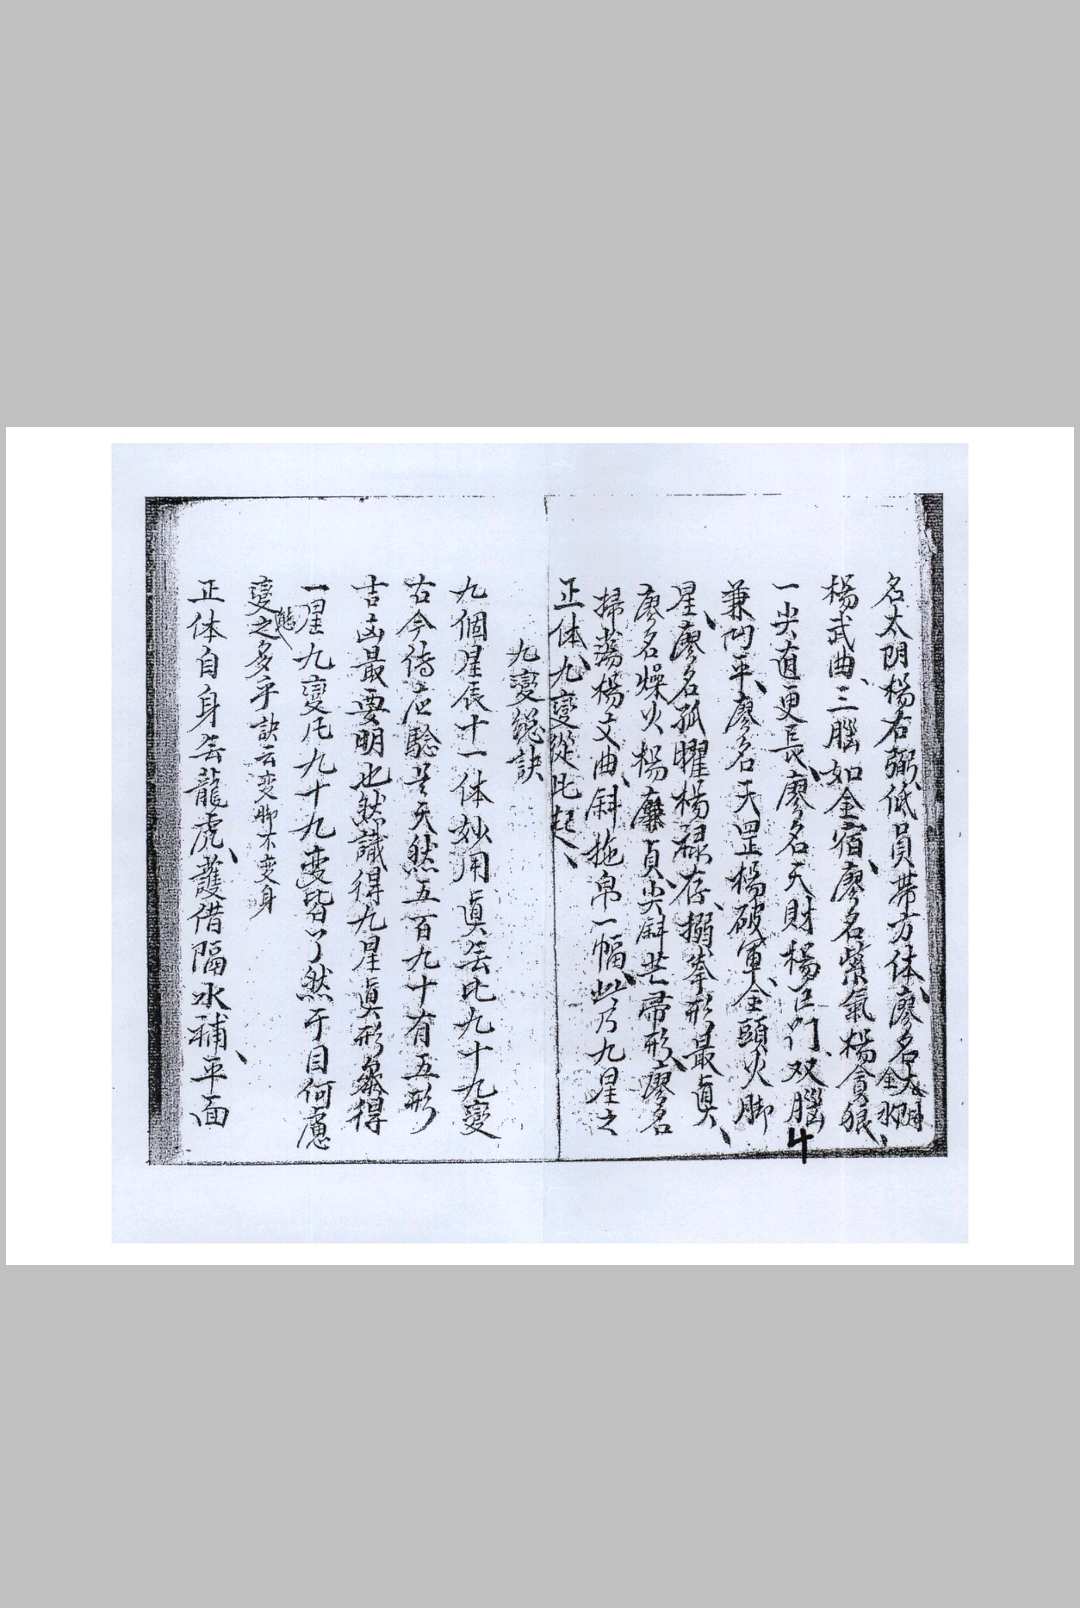 名太阴楊右弼低員帶方体廖名金水
楊武曲三腦如金宿廖名紫氣楊貪狼
一尖直更長廖名天財楊巨门双腦
兼凹平廖名天罡楊破軍金頭火脚
星廖名孤曜楊祿存搦拳形最真
廖名燥火楊廉貞尖斜芒帚形廖名
掃蕩楊文曲斜拖帛一幅此乃九星之
正体九變從此起
九變總訣
九個星辰十一体妙用眞吉比九十九變
古今傳应驗是天然五百九十有五形
吉凶最要明也然識得九星眞形纔得
一星九變凡九十九变皆了然于目何慮
變態之多乎訣云变脚不变身
正体自身吉龍虎護借隔水補平面
4